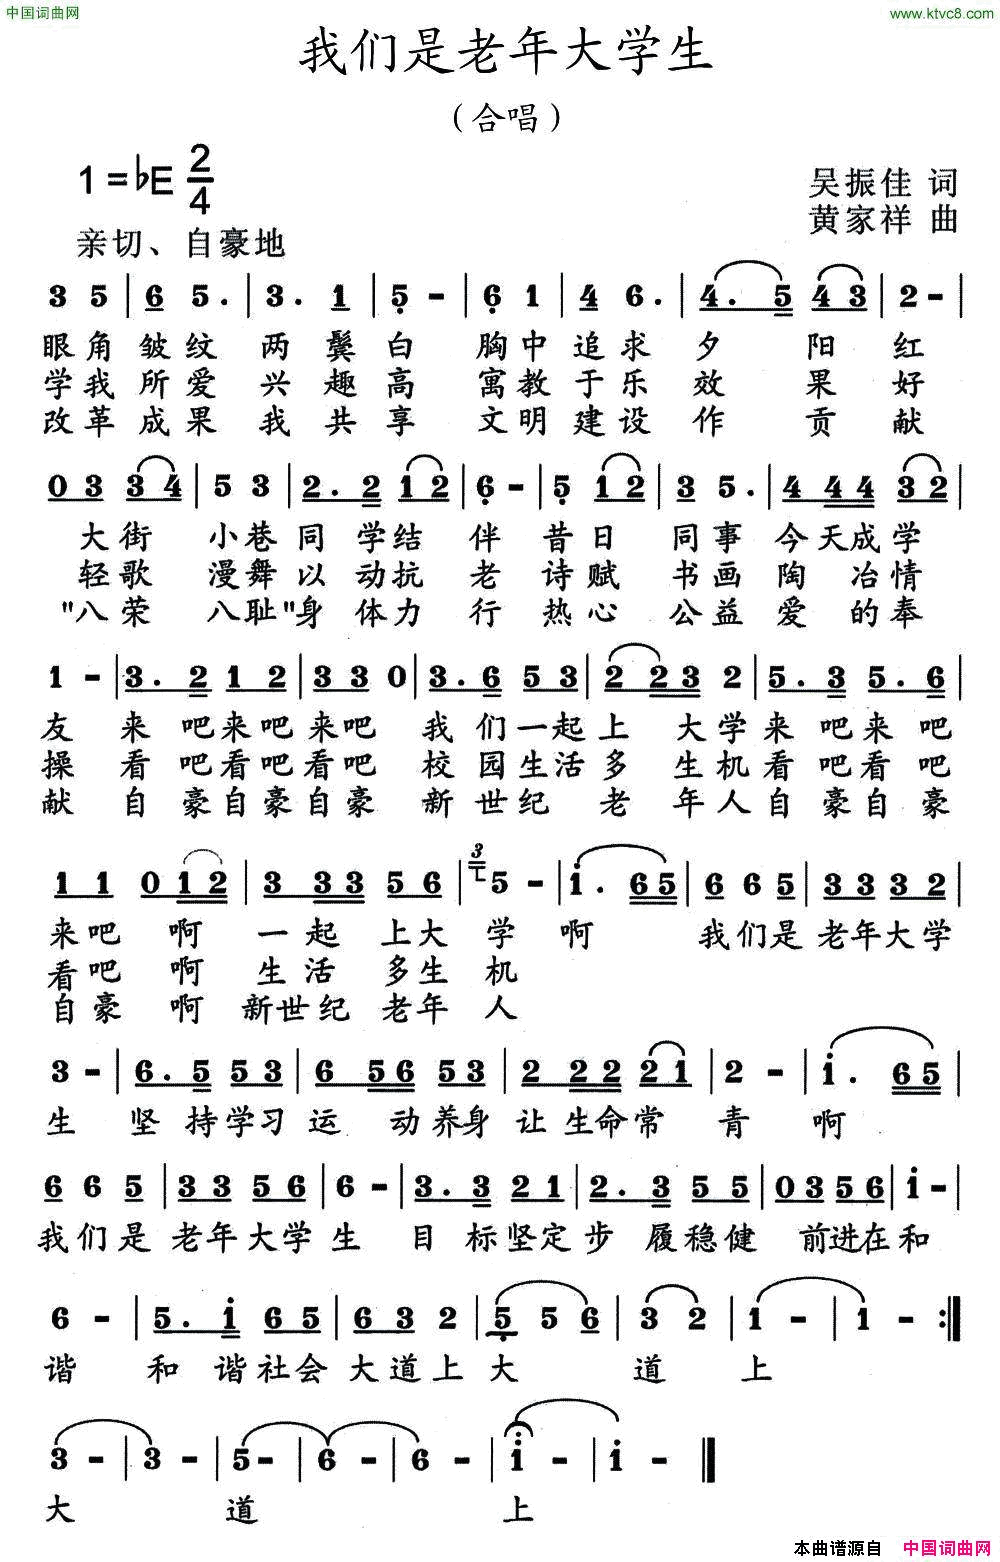 中国词曲网 www.ktvc8.com
我们是老年大学生
（合唱）
1=♭E 2/4
吴振佳 词
黄家祥 曲
亲切、自豪地
3 5 | 6 5. | 3. 1 | 5 - | 6 1 | 4 6. | 4. 5 4 3 | 2 - |
眼角皱纹两鬓白 胸中追求夕阳红
学我所爱兴趣高 寓教于乐效果好
改革成果我共享 文明建设作贡献
0 3 3 4 | 5 3 | 2. 2 1 2 | 6 - | 5 1 2 | 3 5. | 4 4 4 3 2 |
大街小巷同学结伴昔日同事今天成学
轻歌漫舞以动抗老诗赋书画陶冶情
"八荣八耻"身体力行热心公益爱的奉
1 - | 3. 2 1 2 | 3 3 0 | 3. 6 5 3 | 2 2 3 2 | 5. 3 5. 6 |
友来吧来吧来吧我们一起上大学来吧来吧
操看吧看吧看吧校园生活多生机看吧看吧
献自豪自豪自豪新世纪老年人自豪自豪
1 1 0 1 2 | 3 3 3 5 6 | 3 5 - | i. 6 5 | 6 6 5 | 3 3 3 2 |
来吧啊一起上大学啊 我们是老年大学
看吧啊生活多生机
自豪啊新世纪老年人
3 - | 6. 5 5 3 | 6 5 6 5 3 | 2 2 2 2 1 | 2 - | i. 6 5 |
生坚持学习运动养身让生命常青啊
6 6 5 | 3 3 5 6 | 6 - | 3. 3 2 1 | 2. 3 5 5 | 0 3 5 6 | i - |
我们是老年大学生目标坚定步履稳健前进在和
6 - | 5. i 6 5 | 6 3 2 | 5 5 6 | 3 2 | 1 - | 1 - :||
谐和谐社会大道上大道上
3 - | 3 - | 5 - | 6 - | 6 - | i - | i - ||
大道上
本曲谱源自 中国词曲网